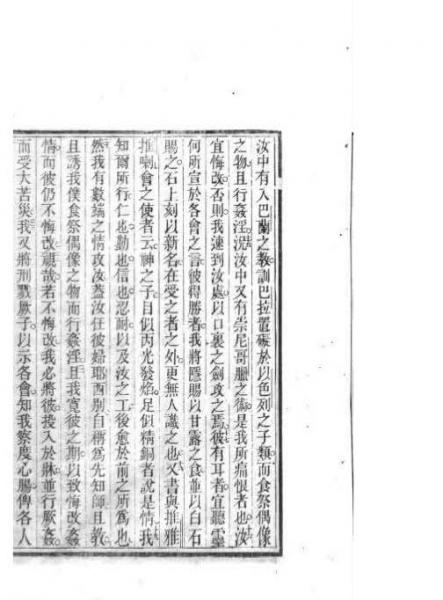 汝中有入巴蘭之教訓巴拉置礙於以色列之子類而食祭偶像
之物且行姦淫況汝中又有崇尼哥臘之衛是我所痛恨者也汝
宜悔改否則我速到汝處以口裏之劍攻之焉彼有耳者宜聽靈
何所宣於各會之言彼得勝者我將隱賜以甘露之食並以白石
賜之石上刻以新名在受之者之外更無人識之也又書與推雅
推喇會之使者云神之子目似丙光發焰足似精銅者說是情我
知爾所行仁也勤也信也忍耐以及汝之工後愈於前之所為也
然我有數端之情攻汝蓋汝任彼婦耶西別自稱為先知師且教
且誘我僕食祭偶像之物而行姦淫且我寬彼之期以致悔改姦
情而彼仍不悔改視哉若不悔改我必將彼投入於牀並行厥姦
而受大苦災我又將刑戮厥子以示各會知我察度心腸俾各人